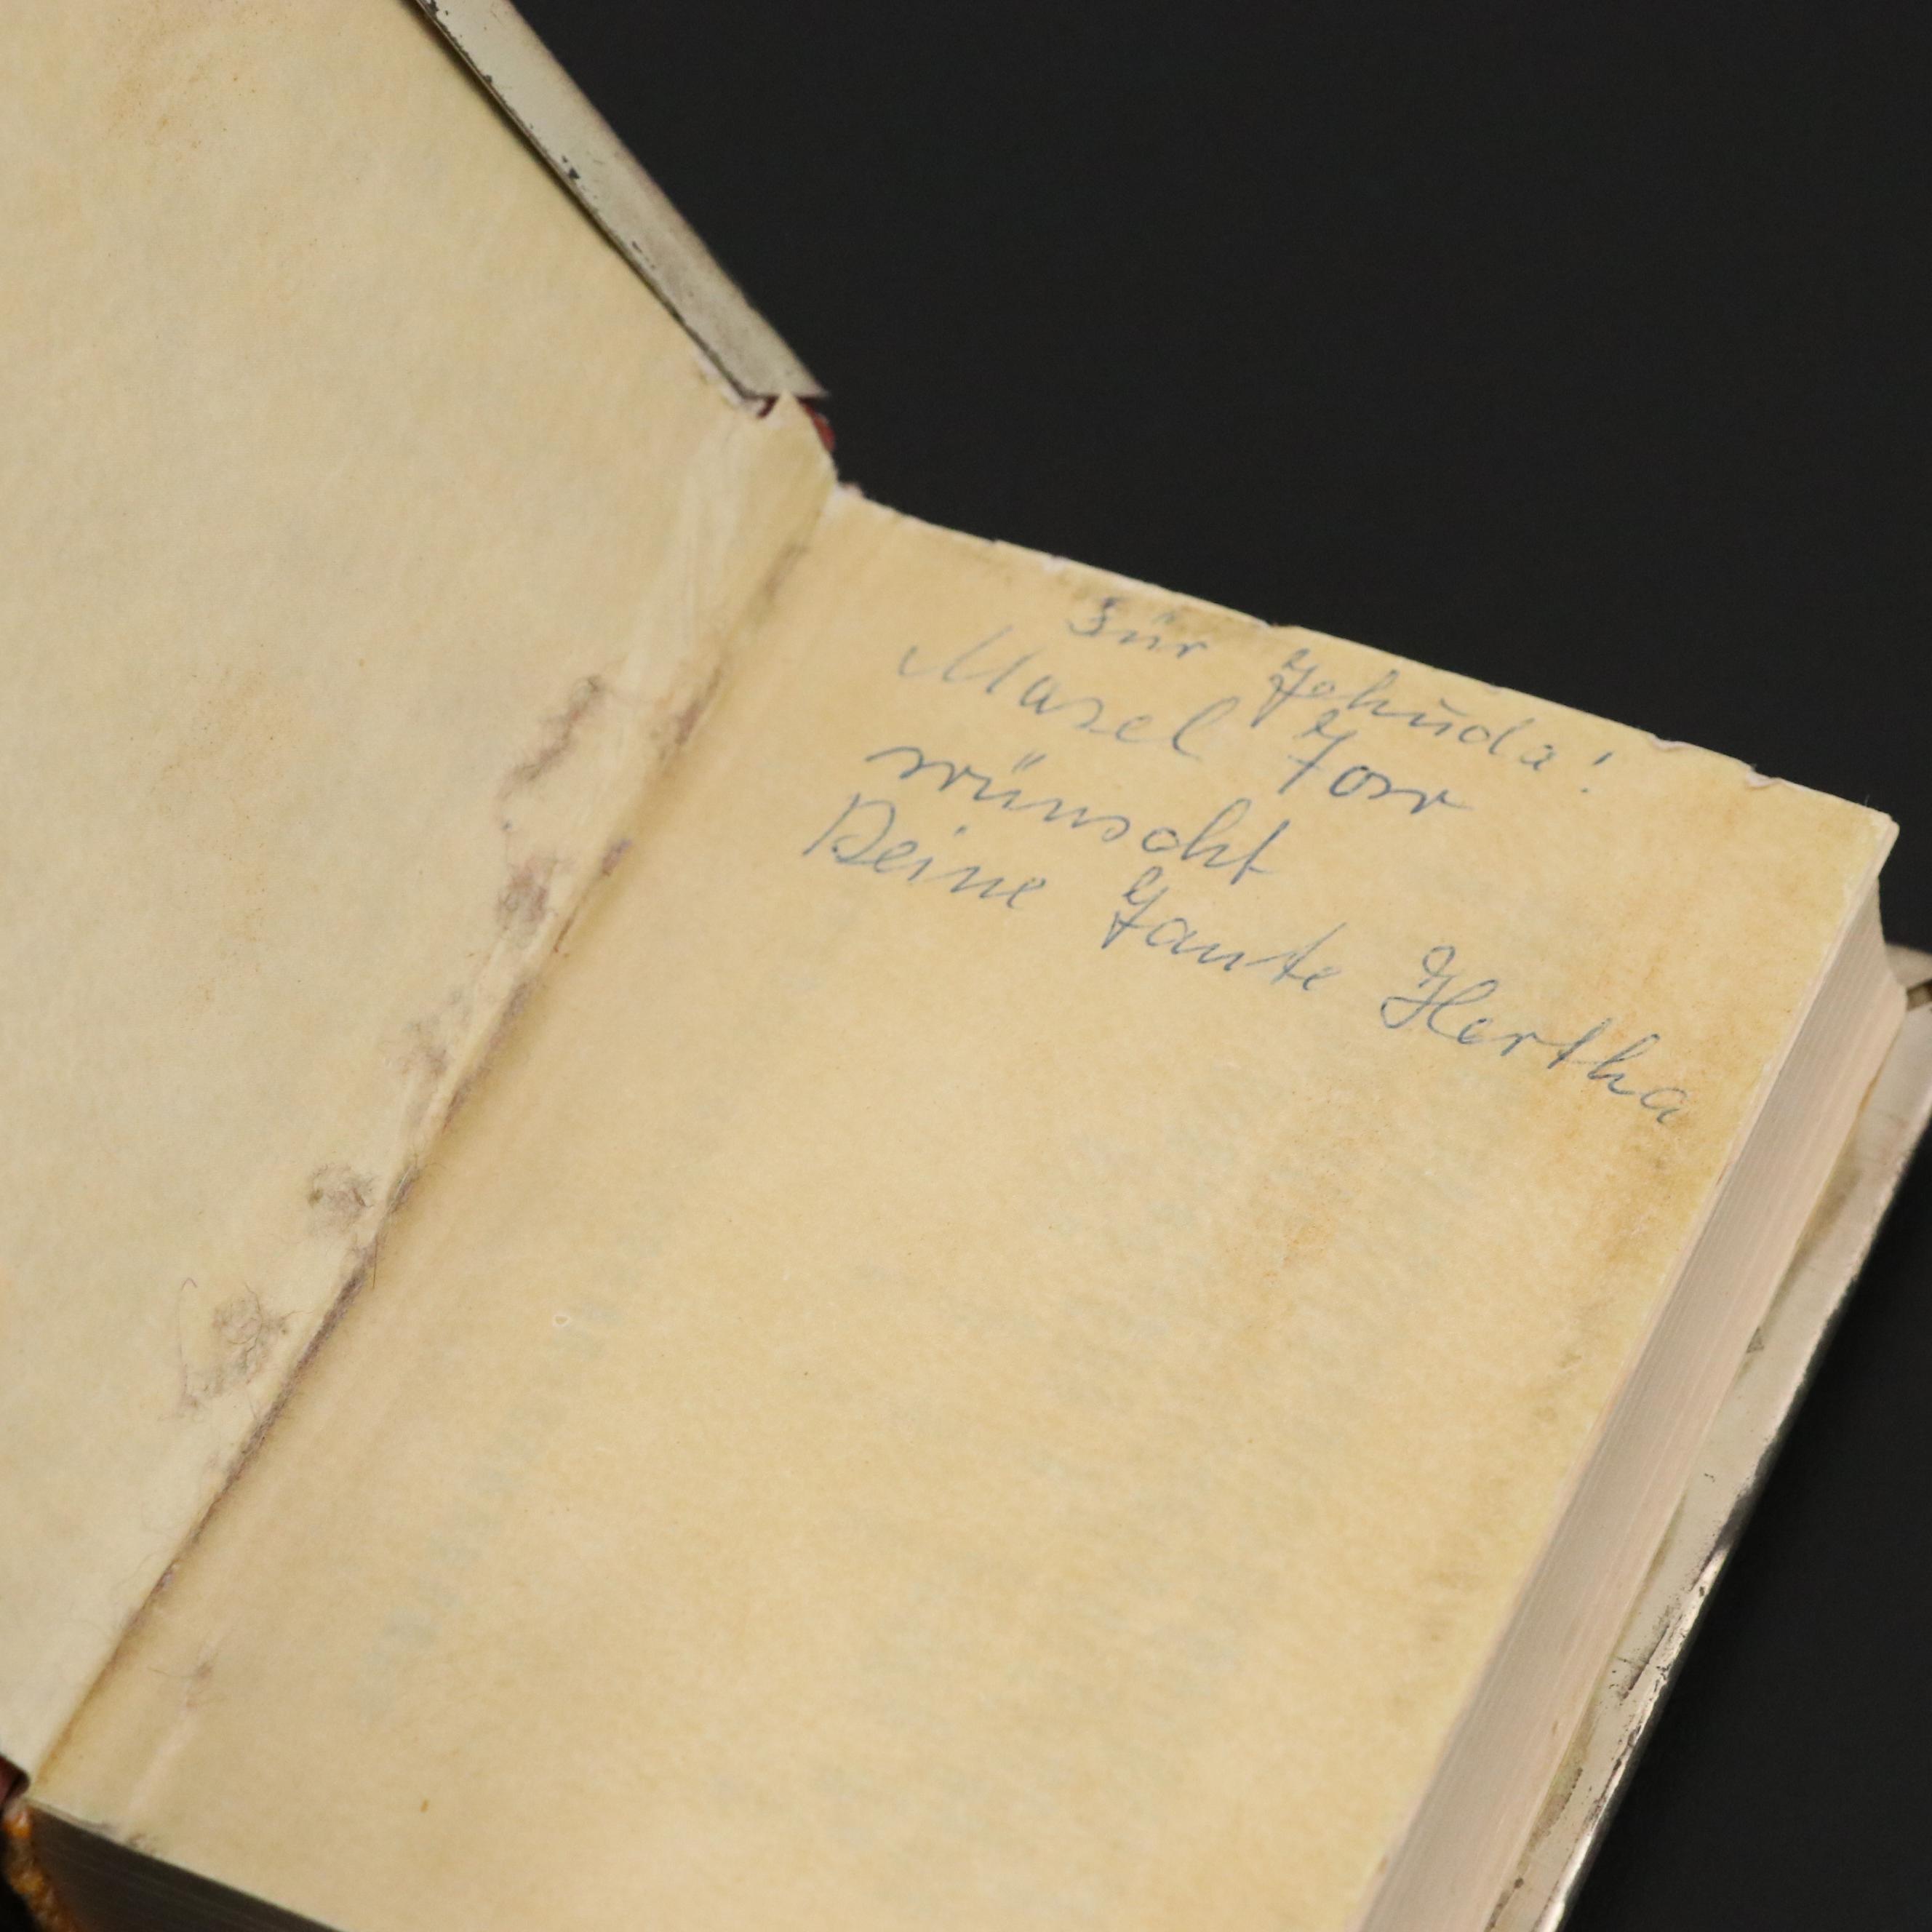 Für Jehuda!
Masel Tow
wünscht
Deine Tante Hertha